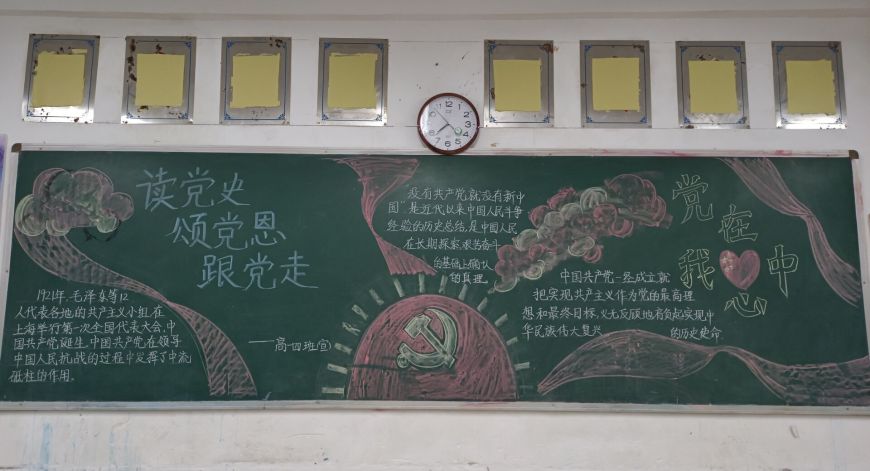 读党史
颂党恩
跟党走
1921年,毛泽东等12
人代表各地的共产主义小组,在
上海举行第一次全国代表大会,中
国共产党诞生,中国共产党在领导
中国人民抗战的过程中发挥了中流
砥柱的作用。
——高一四班宣
"没有共产党就没有新中
国"是近代以来中国人民斗争
经验的历史总结,是中国人民
在长期探索艰苦奋斗
的基础上确认
的真理。
党在
我心中
中国共产党一经成立就
把实现共产主义作为党的最高理
想和最终目标,义无反顾地肩负起实现中
华民族伟大复兴的历史使命
12
1
2
3
4
5
6
7
8
9
10
11